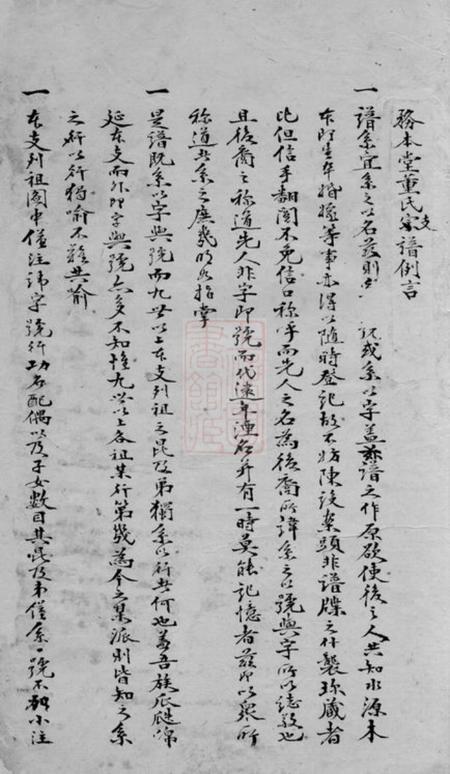 務本堂董氏支譜例言
一 譜系宜系之以名茲則 系或系以字蓋茲譜之作原欲使後之人共知水源木
本即生卒婚嫁等事亦得以隨時登記故不妨陳設案頭非譜牒之什襲珍藏者
比但信手翻閱不免信口称呼而先人之名為後裔所諱系之以號與字所以誌敬也
且後裔之称道先人非字即號而代遠年湮名并有一時莫能記憶者茲即以眾所
称道者系之庶幾明如指掌
一 是譜既系以字與號而九世以上本支列祖之昆及弟獨系以行者何也蓋吾族瓜瓞綿
延本支而外即字與號亦多不知惟九世以上各祖某行第幾為今之某派則皆知之系
之以行以行猶喻不難共喻
一 本支列祖圖中僅注諱字號行功名配偶以及子女數目其昆及弟僅系一號不 小注